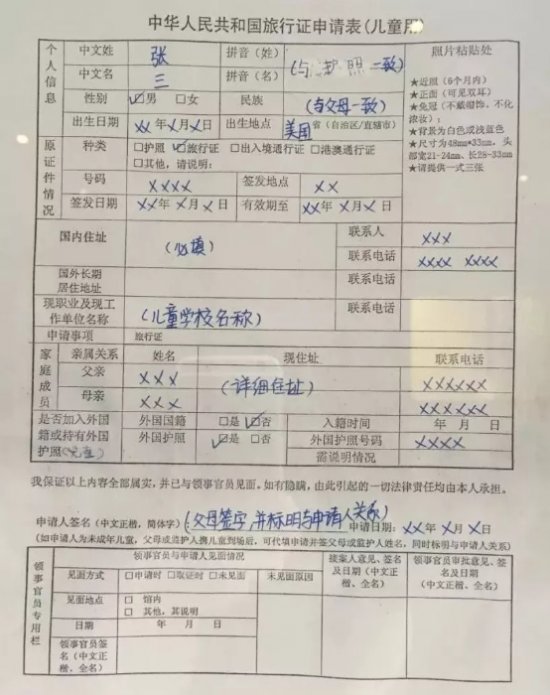 中华人民共和国旅行证申请表(儿童用)
个人信息
中文姓 张 拼音(姓) (与护照一致)
中文名 三 拼音(名)
性别 ☑男 □女 民族 (与父母一致)
出生日期 xx年x月x日 出生地点 美国 省(自治区/直辖市)
照片粘贴处
★近照(6个月内)
★正面(可见双耳)
★免冠(不戴帽饰、不化
浓妆);
★背景为白色或浅蓝色
★尺寸为48mm*33mm,头
部宽21-24mm、长28-33mm
★请提供一式三张
原证件情况
种类 □护照 ☑旅行证 □出入境通行证 □港澳通行证
□其他,请说明:
号码 xxxx 签发地点 xx
签发日期 xx年x月x日 有效期至 xx年x月x日
国内住址 (必填) 联系人 xxx
联系电话 xxxx xxxx
国外长期
居住地址 联系电话
现职业及现工
作单位名称 (儿童学校名称) 联系电话
申请事项 旅行证
家庭成员
亲属关系 姓名 现住址 联系电话
父亲 xxx (详细住址) xxxxxx
母亲 xxx xxxxxx
是否加入外国
籍或持有外国
护照
外国国籍 □是 ☑否 入籍时间 年 月 日
外国护照 ☑是 □否 外国护照号码 xxxx
需说明情况
我保证以上内容全部属实,并已与领事官员见面。如有隐瞒,由此引起的一切法律责任均由本人承担。
申请人签名(中文正楷,简体字) (父母签字,并标明与申请人关系) 申请日期:xx年x月x日
(如申请人为未成年儿童,父母或监护人携儿童到场后,可代填申请并签父母或监护人姓名,同时标明与申请人关系)
领事官员专用栏
领事官员与申请人见面情况
见面方式 □申请时 □取证时 □未见面 未见面原因
见面地点 □ 馆内
□ 其他,其说明
日期 年 月 日
领事官员签
名(中文正
楷、全名)
接案人意见、签名
及日期(中文正
楷、全名)
领事官员审批意见、签
名及日期
(中文正楷、全名)